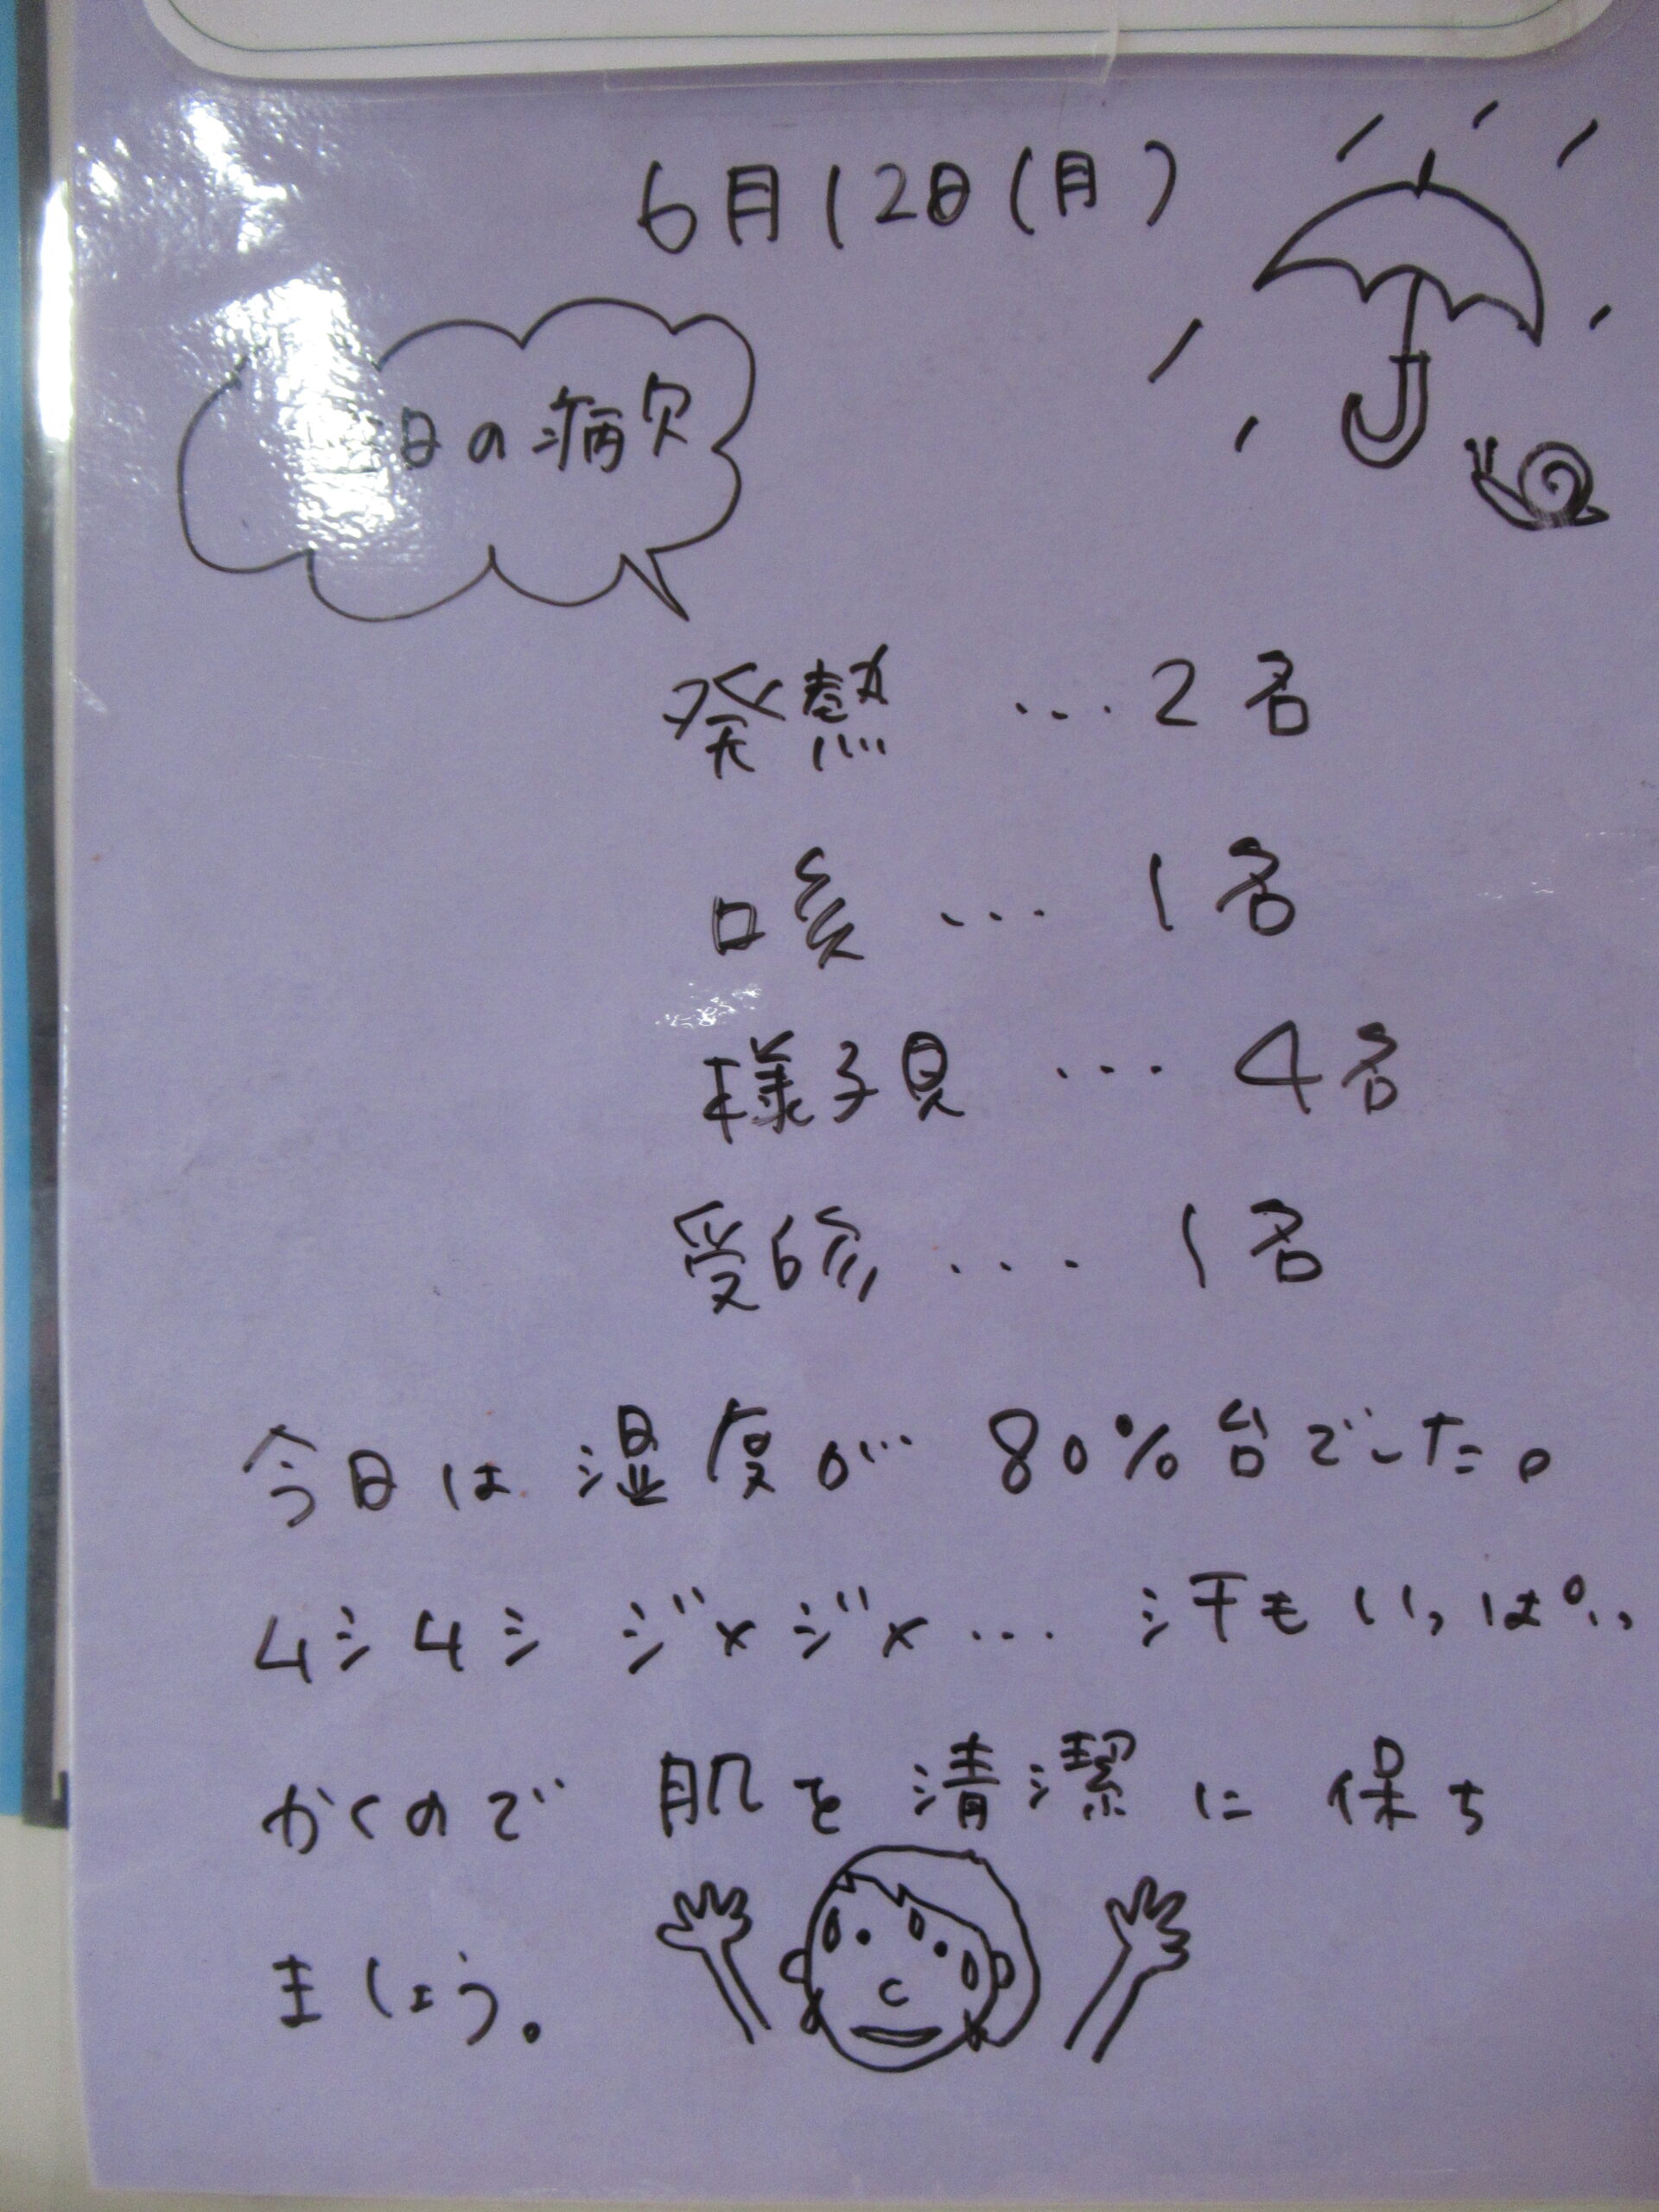 6月12日(月)
日の病欠
発熱 ...2名
咳 ... 1名
様子見 ... 4名
受診 .... 1名
今日は湿度が80%台でした。
ムシムシ ジメジメ... 汗もいっぱい
かくので 肌を清潔に保ち
ましょう。